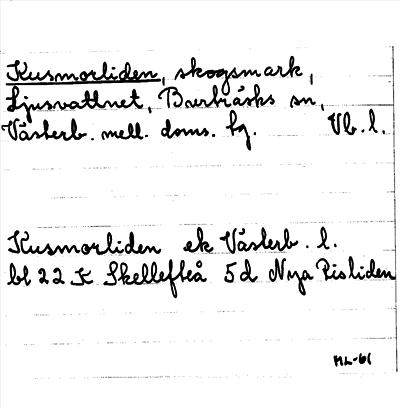 Kusmorliden, skogsmark,
Ljusvattnet, Burträsks sn,
Västerb. mell. doms. tg. Vb. l.
Kusmorliden ek Västerb. l.
bl 22 K Skellefteå 5d Nya Pisliden
ML-61